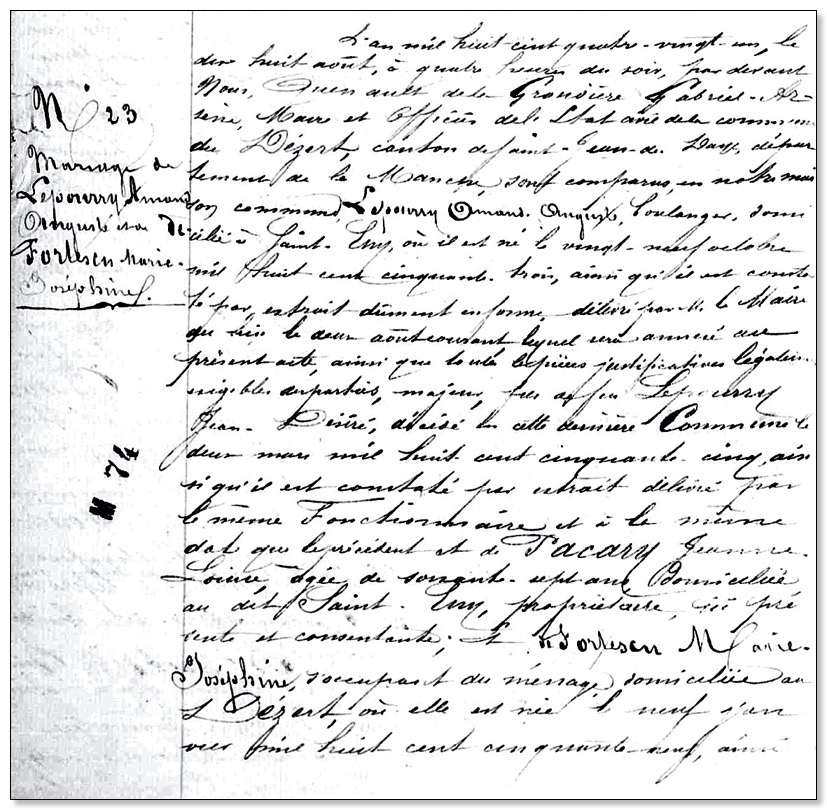 N° 23
Mariage de
Lepourry Amand
Auguste et de
Fortescu Marie-
Joséphine.
H 74
L'an mil huit cent quatre-vingt-un, le
dix huit août, à quatre heures du soir, par devant
Nous, Quenault de la Grondière Gabriel-Ar-
sène, Maire et Officier de l'Etat civil de la commune
du Dézert, canton de Saint-Jean-de-Daye, dépar
tement de la Manche, sont comparus, en notre mai
son commune, Lepourry Amand Auguste, boulanger, domi
cilié à Saint-Eny, où il est né le vingt-neuf octobre
mil huit cent cinquante-trois, ainsi qu'il est consta
té par extrait dûment en forme, délivré par M. le Maire
du lieu le deux août courant lequel sera annexé au
présent acte, ainsi que toutes les pièces justificatives légalem
exigibles des parties, majeur, fils de feu Lepourry
Jean-Désiré, décédé en cette dernière Commune le
deux mars mil huit cent cinquante-cinq, ain
si qu'il est constaté par extrait délivré par
le même Fonctionnaire et à la même
date que le précédent et de Pacary Jeanne-
Louise, âgée de soixante-sept ans Domiciliée
au dit Saint-Eny, propriétaire, ici pré
sente et consentante; Et Fortescu Marie-
Joséphine, s'occupant du ménage, domiciliée au
Dézert, où elle est née le neuf jan
vier mil huit cent cinquante-neuf, ainsi